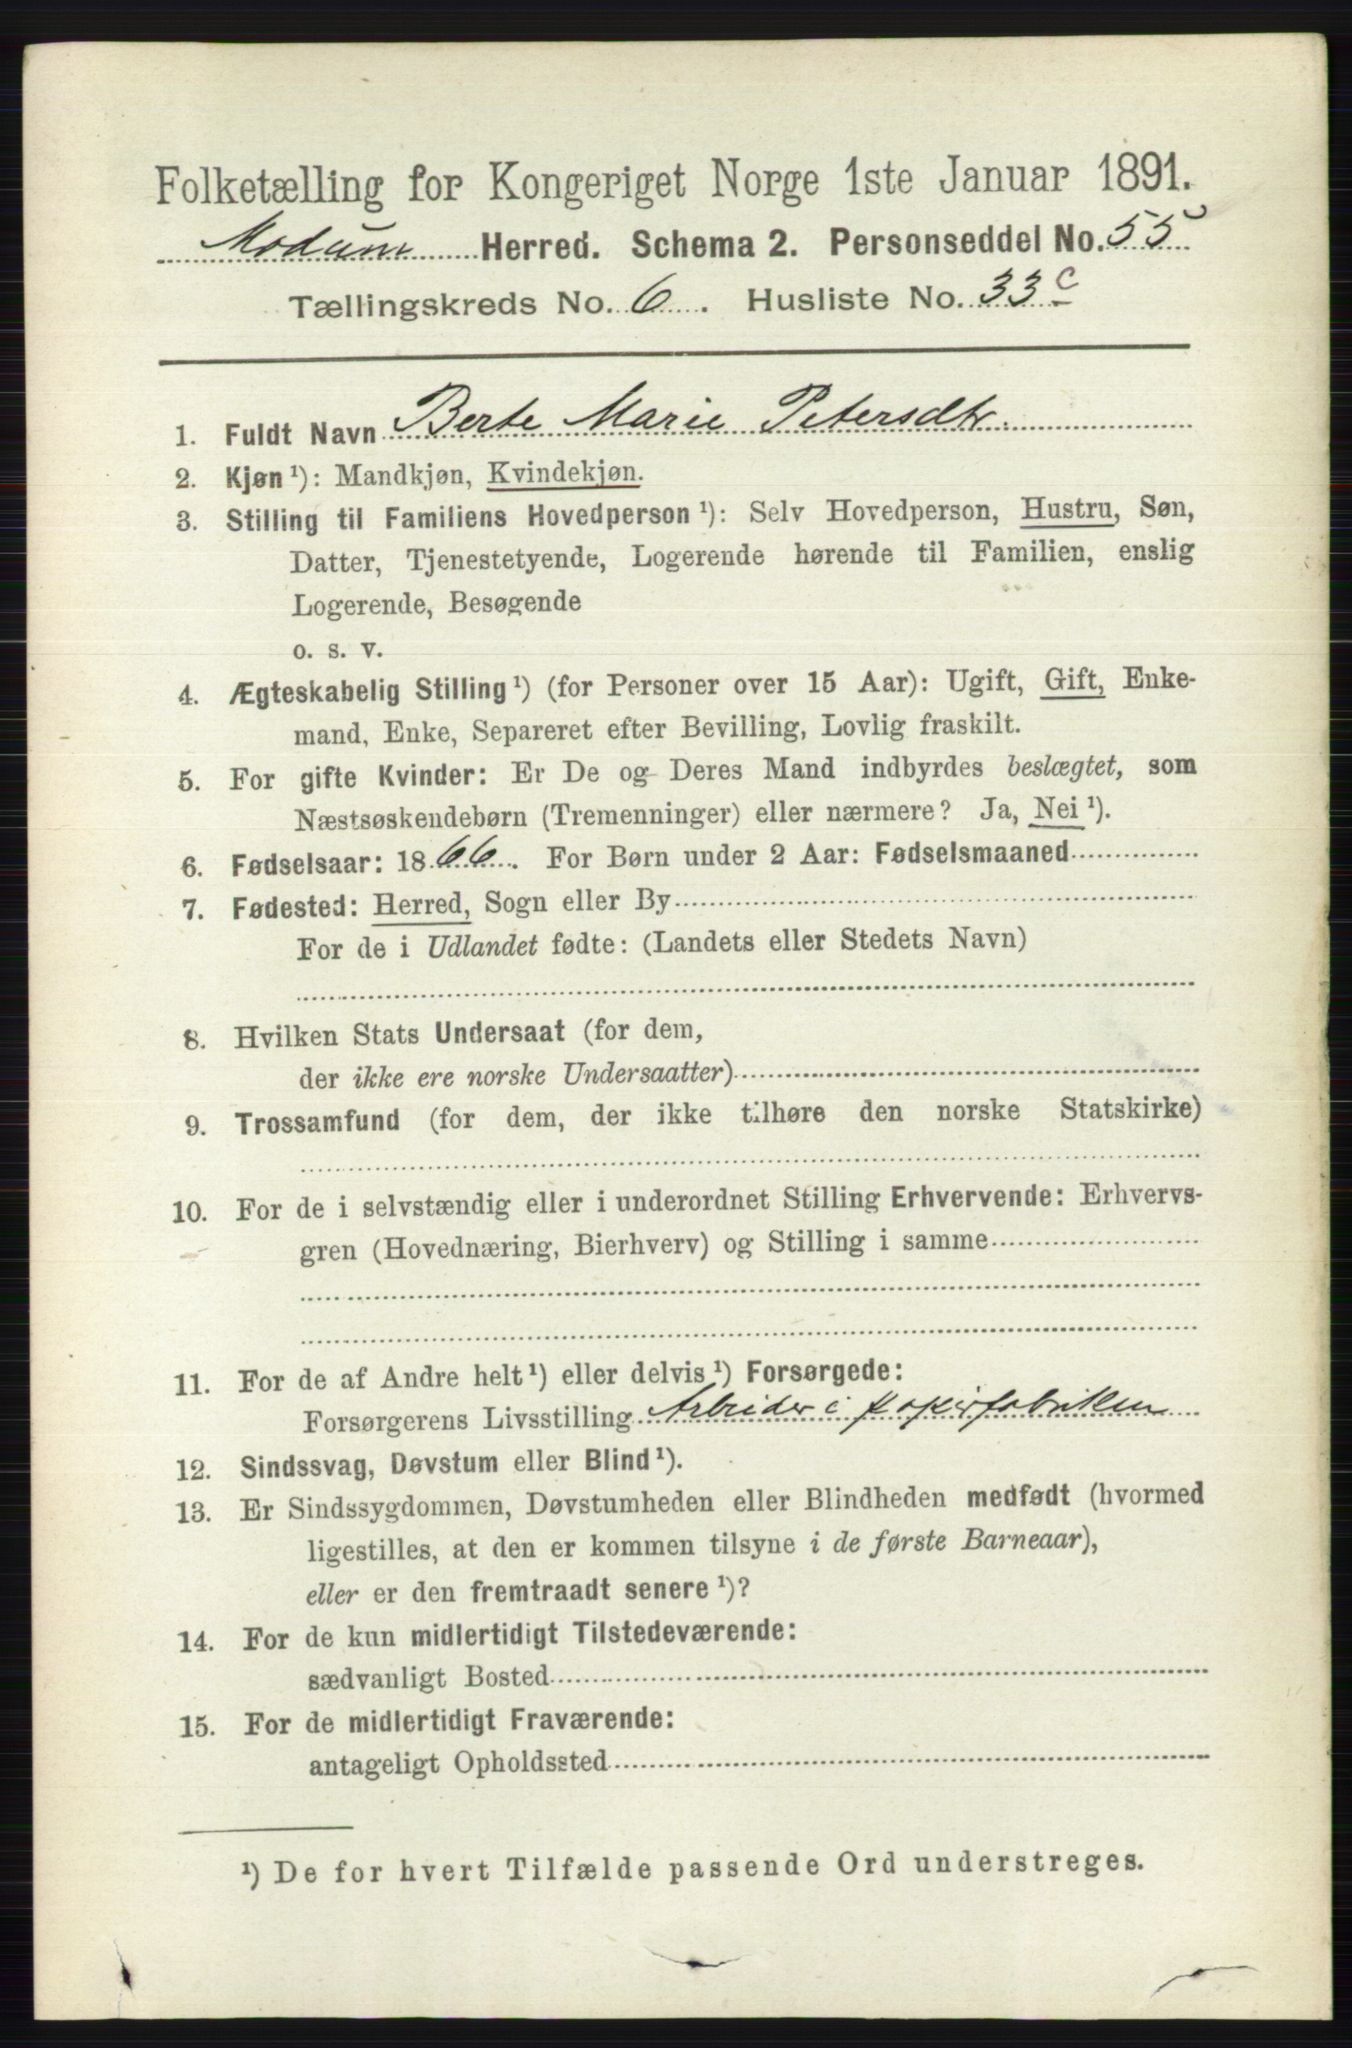 Folketælling for Kongeriget Norge 1ste Januar 1891.
Modum Herred. Schema 2. Personseddel No. 55
Tællingskreds No. 6. Husliste No. 33 c
1. Fuldt Navn Berte Marie Petersdtr.
2. Kjøn ¹): Mandkjøn, Kvindekjøn.
3. Stilling til Familiens Hovedperson ¹): Selv Hovedperson, Hustru, Søn,
Datter, Tjenestetyende, Logerende hørende til Familien, enslig
Logerende, Besøgende
o. s. v.
4. Ægteskabelig Stilling ¹) (for Personer over 15 Aar): Ugift, Gift, Enke-
mand, Enke, Separeret efter Bevilling, Lovlig fraskilt.
5. For gifte Kvinder: Er De og Deres Mand indbyrdes beslægtet, som
Næstsøskendebørn (Tremenninger) eller nærmere? Ja, Nei ¹).
6. Fødselsaar: 1866. For Børn under 2 Aar: Fødselsmaaned
7. Fødested: Herred, Sogn eller By
For de i Udlandet fødte: (Landets eller Stedets Navn)
8. Hvilken Stats Undersaat (for dem,
der ikke ere norske Undersaatter)
9. Trossamfund (for dem, der ikke tilhøre den norske Statskirke)
10. For de i selvstændig eller i underordnet Stilling Erhvervende: Erhvervs-
gren (Hovednæring, Bierhverv) og Stilling i samme
11. For de af Andre helt ¹) eller delvis ¹) Forsørgede:
Forsørgerens Livsstilling Arbeider i papirfabriken
12. Sindssvag, Døvstum eller Blind ¹).
13. Er Sindssygdommen, Døvstumheden eller Blindheden medfødt (hvormed
ligestilles, at den er kommen tilsyne i de første Barneaar),
eller er den fremtraadt senere ¹)?
14. For de kun midlertidigt Tilstedeværende:
sædvanligt Bosted
15. For de midlertidigt Fraværende:
antageligt Opholdssted
¹) De for hvert Tilfælde passende Ord understreges.